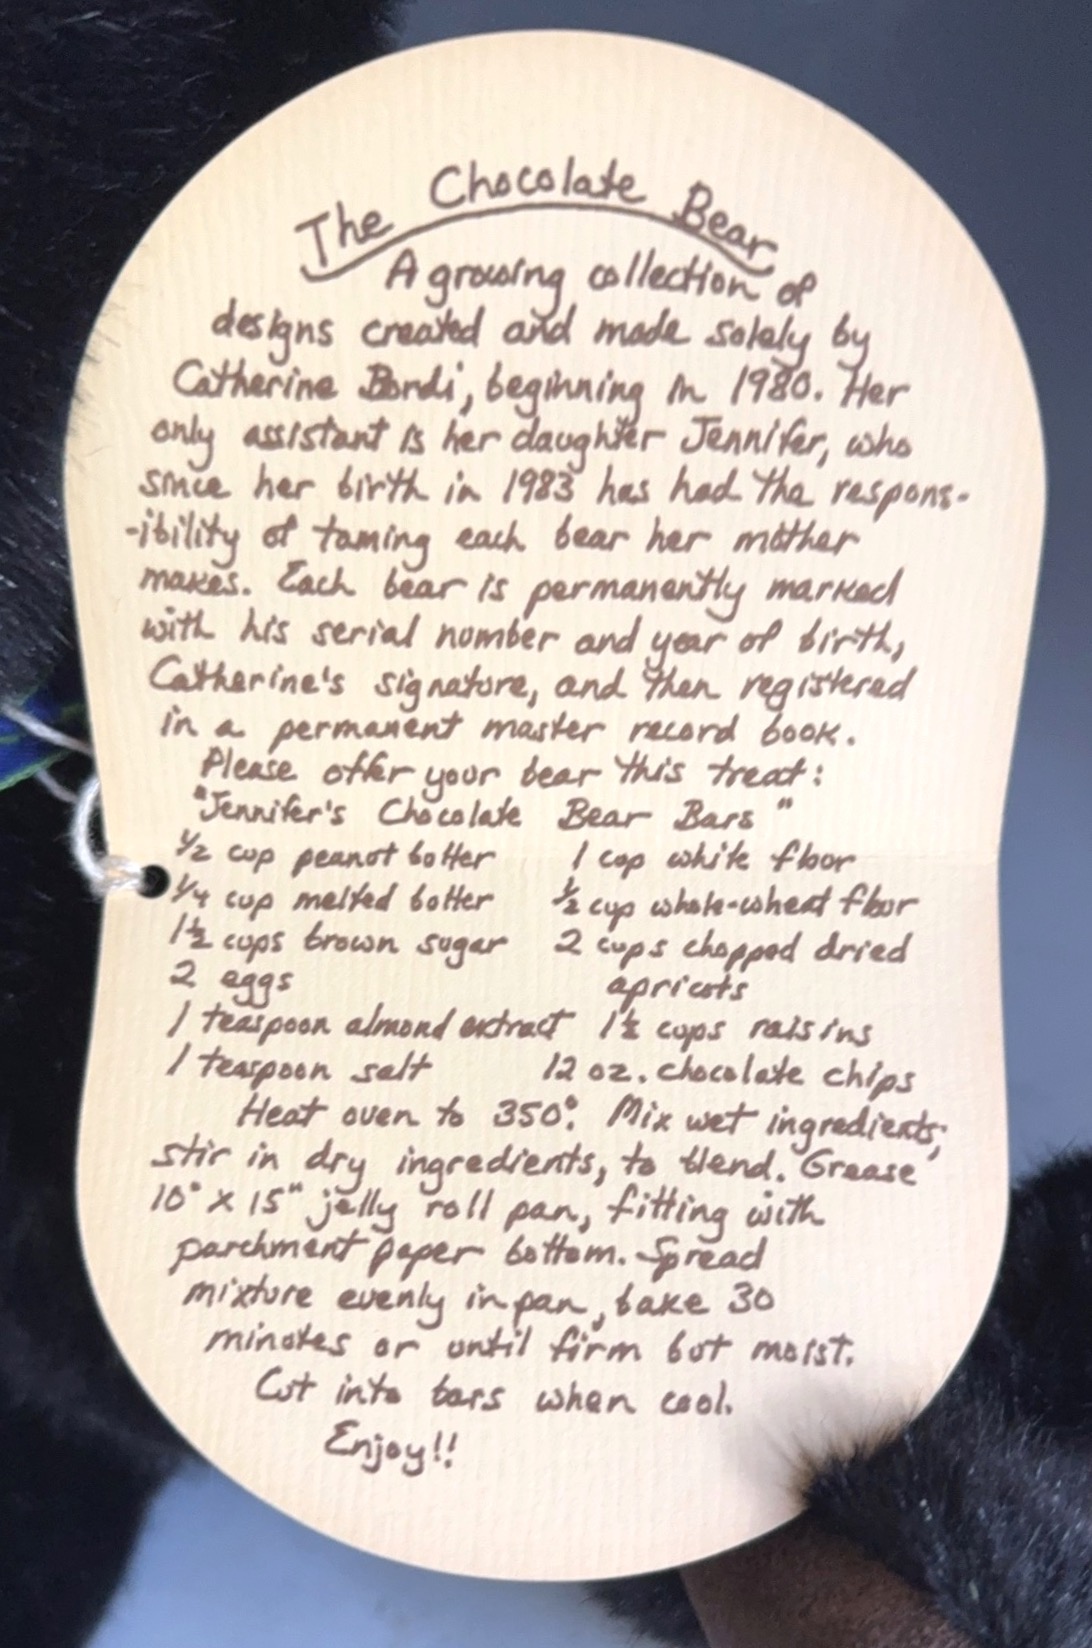 The Chocolate Bear
A growing collection of
designs created and made solely by
Catherine Bordi, beginning in 1980. Her
only assistant is her daughter Jennifer, who
since her birth in 1983 has had the respons-
-ibility of taming each bear her mother
makes. Each bear is permanently marked
with his serial number and year of birth,
Catherine's signature, and then registered
in a permanent master record book.
Please offer your bear this treat:
"Jennifer's Chocolate Bear Bars"
1/2 cup peanut butter
1/4 cup melted butter
1 1/2 cups brown sugar
2 eggs
1 teaspoon almond extract
1 teaspoon salt
1 cup white flour
1/2 cup whole-wheat flour
2 cups chopped dried
apricots
1 1/2 cups raisins
12 oz. chocolate chips
Heat oven to 350°. Mix wet ingredients,
stir in dry ingredients, to blend. Grease
10" x 15" jelly roll pan, fitting with
parchment paper bottom. Spread
mixture evenly in pan, bake 30
minutes or until firm but moist.
Cut into bars when cool.
Enjoy!!